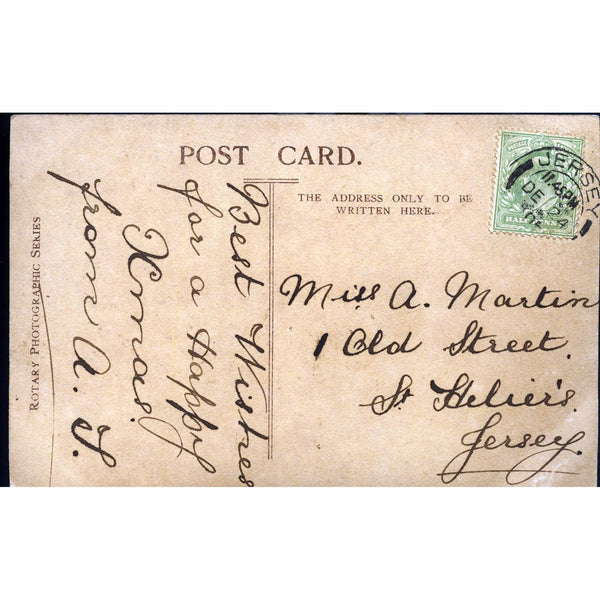 POST CARD.
THE ADDRESS ONLY TO BE
WRITTEN HERE.
ROTARY PHOTOGRAPHIC SERIES
Best Wishes
for a Happy
Xmas.
from A. T.
Miss A. Martin
1 Old Street.
St Helier's.
Jersey.
JERSEY
11.45PM
DE 24
HALFPENNY